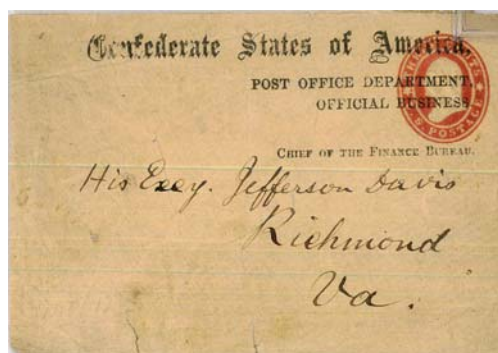 Confederate States of America,
POST OFFICE DEPARTMENT,
OFFICIAL BUSINESS.
CHIEF OF THE FINANCE BUREAU.
His Excy. Jefferson Davis
Richmond
Va.
POSTAGE